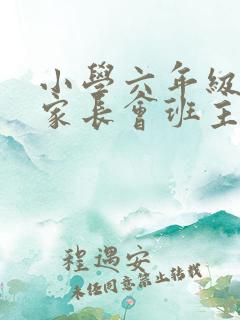 小學六年級
家長會班主
程遇安
未经同意禁止转载